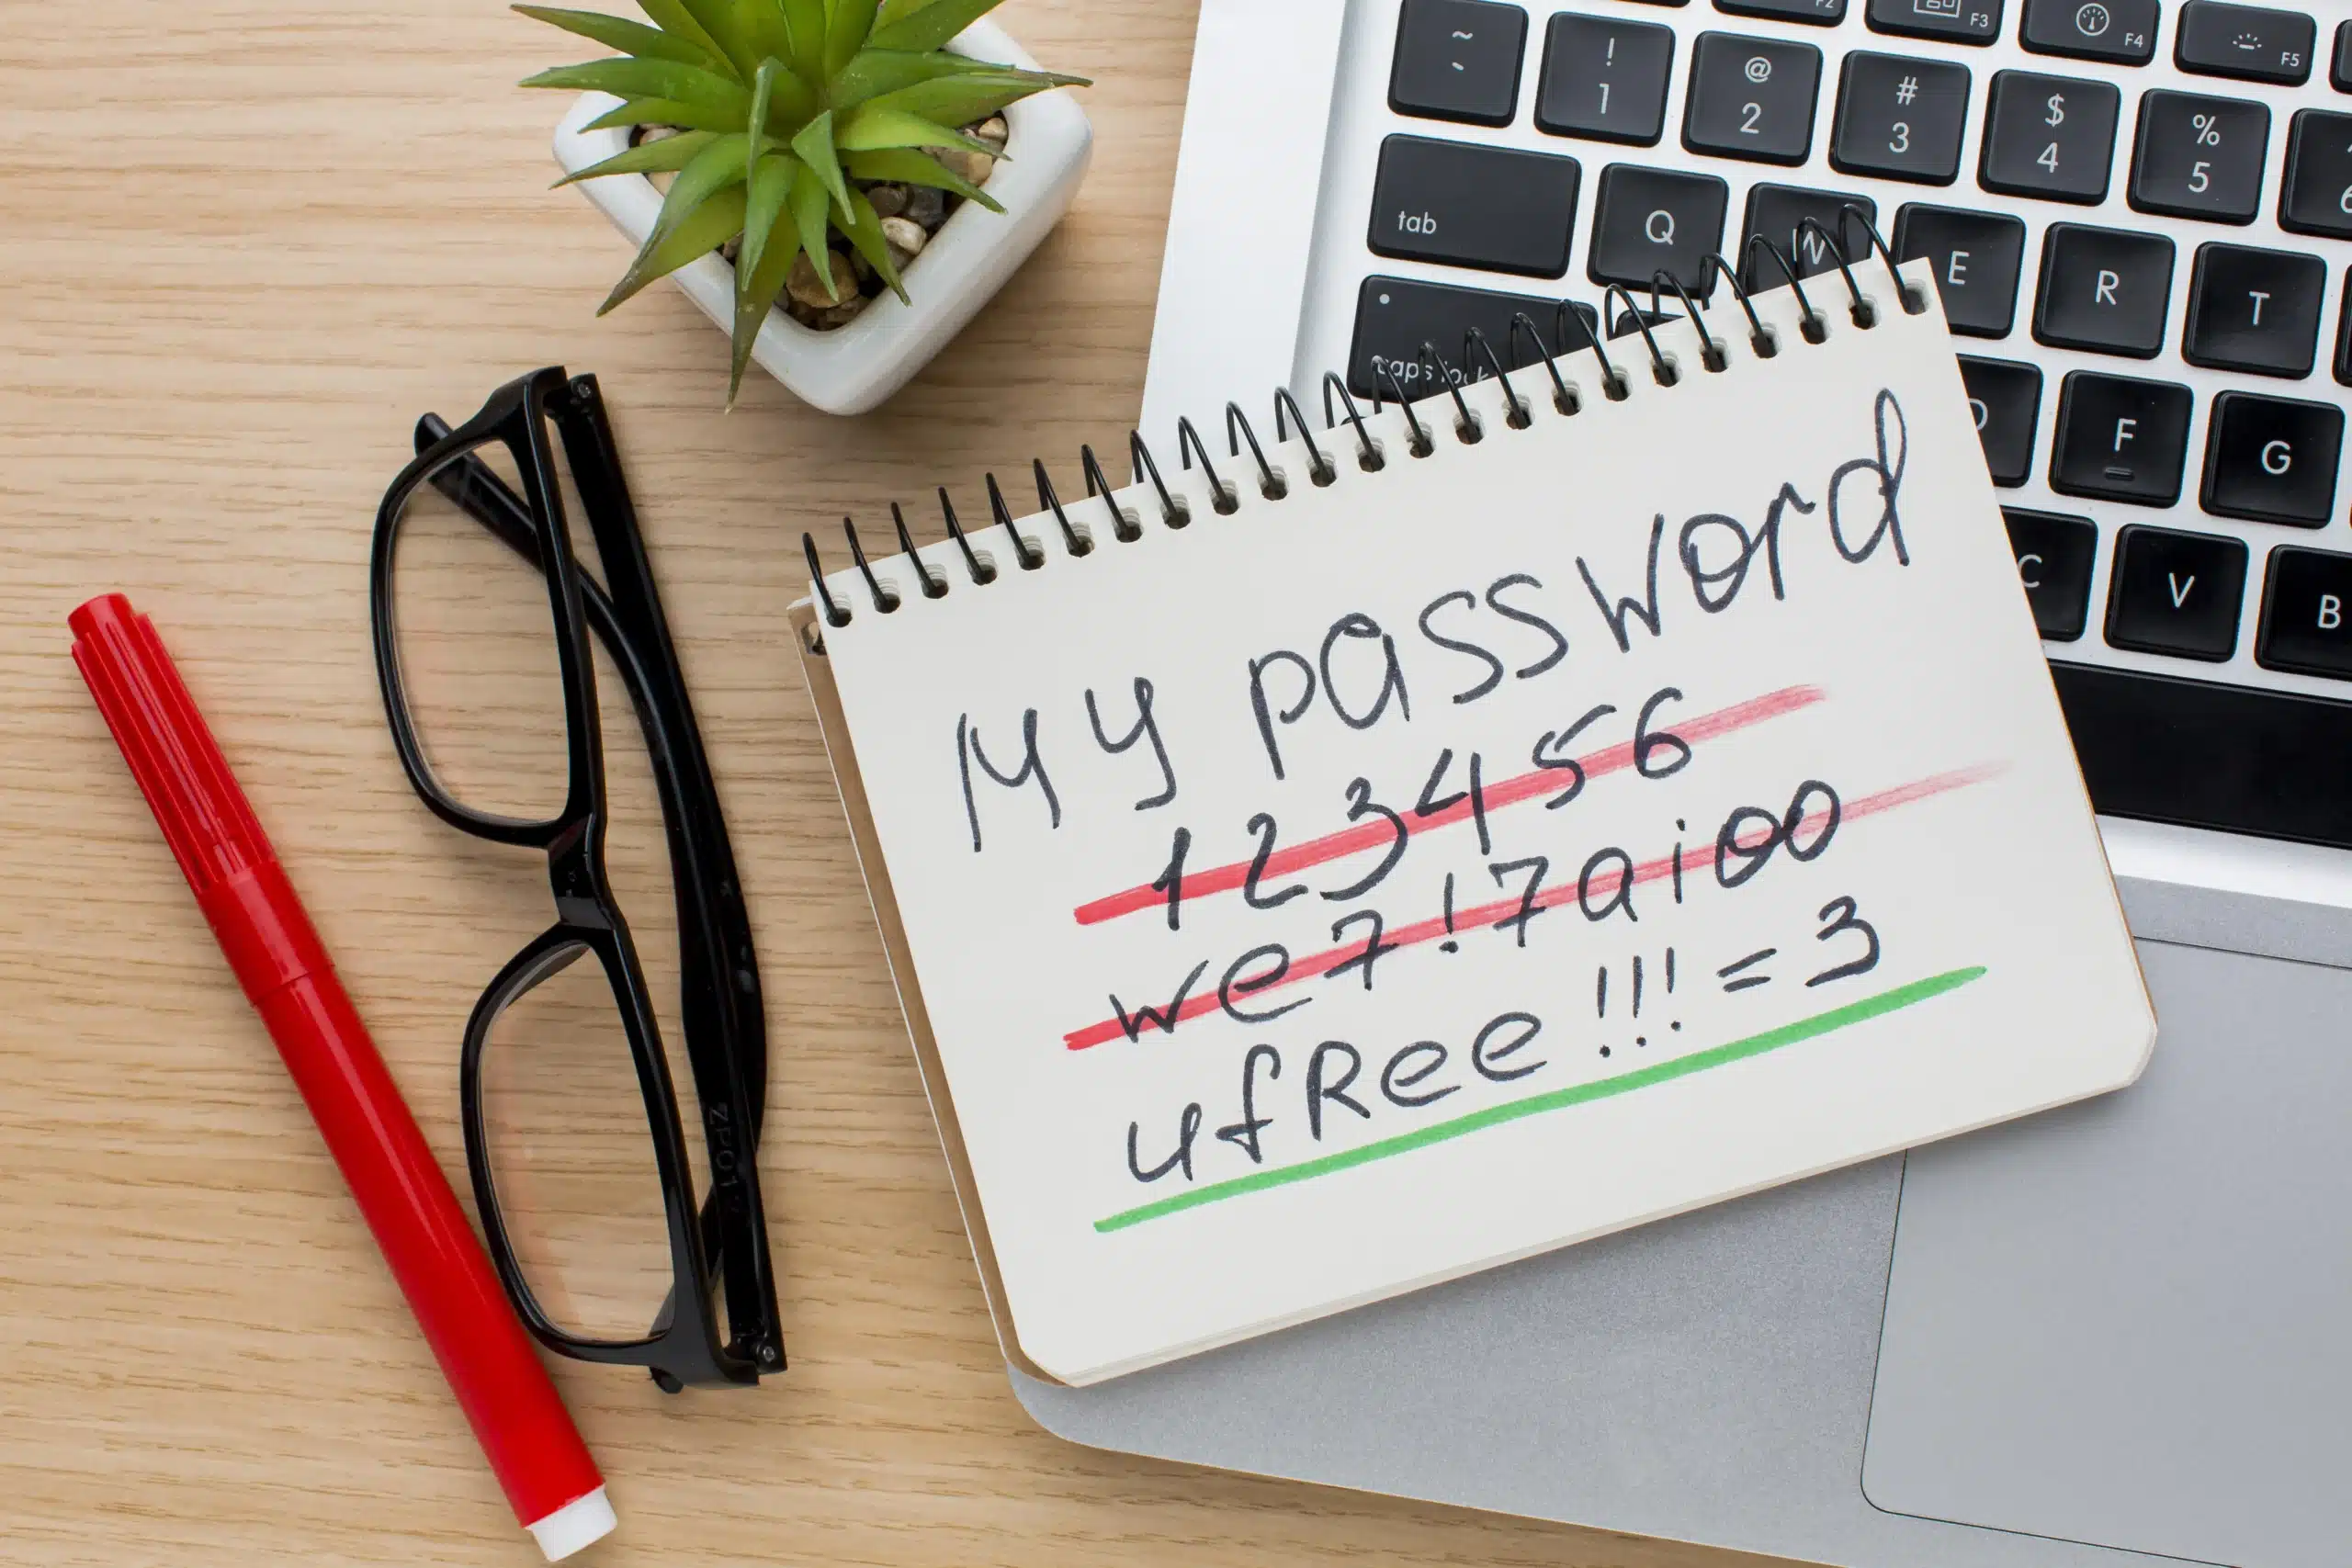 ~
`
! 1
@ 2
# 3
$ 4
% 5
F2
F3
F4
F5
tab
Q
W
E
R
T
caps lock
D
F
G
C
V
B
My password
123456
we7!7aioo
ufRee!!!=3